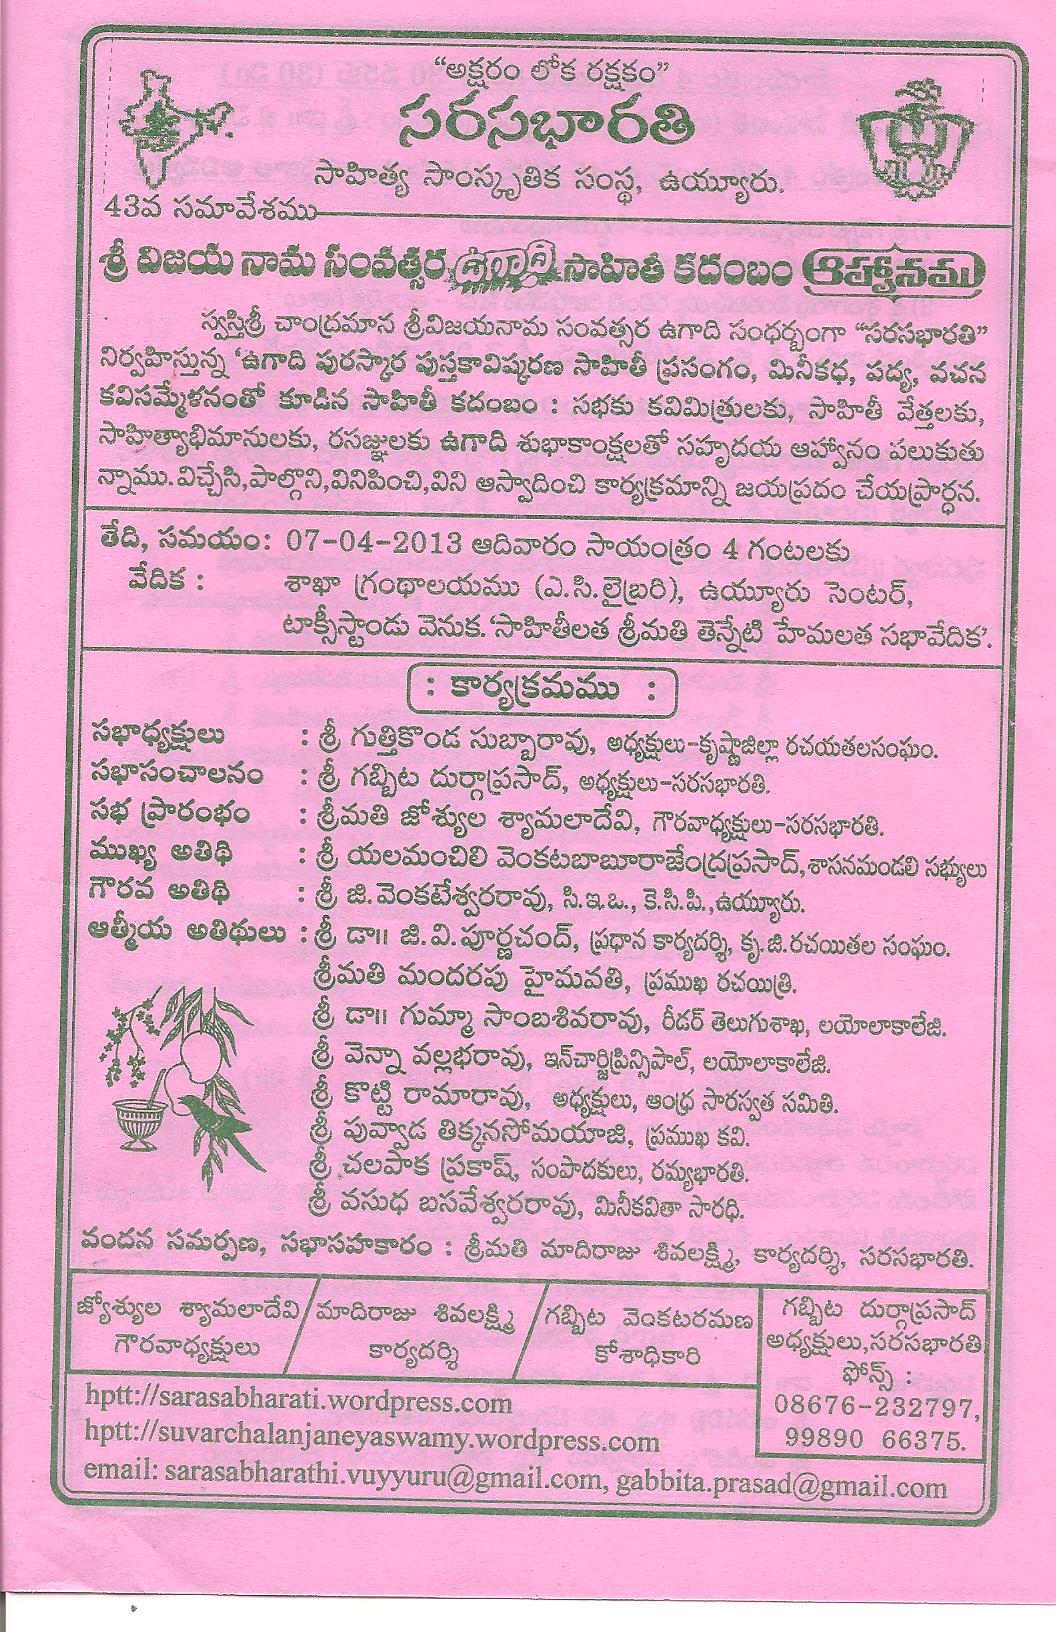 “అక్షరం లోక రక్షకం”
సరసభారతి
సాహిత్య సాంస్కృతిక సంస్థ, ఉయ్యూరు.
43వ సమావేశము
శ్రీ విజయ నామ సంవత్సర ఉగాది సాహితీ కదంబం ఆహ్వానము
స్వస్తిశ్రీ చాంద్రమాన శ్రీవిజయనామ సంవత్సర ఉగాది సంధర్భంగా “సరసభారతి”
నిర్వహిస్తున్న ‘ఉగాది పురస్కార పుస్తకావిష్కరణ సాహితీ ప్రసంగం, మినీకధ, పద్య, వచన
కవిసమ్మేళనంతో కూడిన సాహితీ కదంబం : సభకు కవిమిత్రులకు, సాహితీ వేత్తలకు,
సాహిత్యాభిమానులకు, రసజ్ఞులకు ఉగాది శుభాకాంక్షలతో సహృదయ ఆహ్వానం పలుకుతు
న్నాము.విచ్చేసి,పాల్గొని,వినిపించి,విని ఆస్వాదించి కార్యక్రమాన్ని జయప్రదం చేయప్రార్ధన.
తేది, సమయం: 07-04-2013 ఆదివారం సాయంత్రం 4 గంటలకు
వేదిక : శాఖా గ్రంథాలయము (ఎ.సి.లైబ్రరి), ఉయ్యూరు సెంటర్,
టాక్సీస్టాండు వెనుక.‘సాహితీలత శ్రీమతి తెన్నేటి హేమలత సభావేదిక’.
: కార్యక్రమము :
సభాధ్యక్షులు : శ్రీ గుత్తికొండ సుబ్బారావు, అధ్యక్షులు-కృష్ణాజిల్లా రచయతలసంఘం.
సభాసంచాలనం : శ్రీ గబ్బిట దుర్గాప్రసాద్, అధ్యక్షులు-సరసభారతి.
సభ ప్రారంభం : శ్రీమతి జోశ్యుల శ్యామలాదేవి, గౌరవాధ్యక్షులు-సరసభారతి.
ముఖ్య అతిథి : శ్రీ యలమంచిలి వెంకటబాబూరాజేంద్రప్రసాద్,శాసనమండలి సభ్యులు
గౌరవ అతిథి : శ్రీ జి.వెంకటేశ్వరరావు, సి.ఇ.ఒ., కె.సి.పి.,ఉయ్యూరు.
ఆత్మీయ అతిథులు : శ్రీ డా॥ జి.వి.పూర్ణచంద్, ప్రధాన కార్యదర్శి, కృ.జి.రచయితల సంఘం.
శ్రీమతి మందరపు హైమవతి, ప్రముఖ రచయిత్రి.
శ్రీ డా॥ గుమ్మా సాంబశివరావు, రీడర్ తెలుగుశాఖ, లయోలాకాలేజి.
శ్రీ వెన్నా వల్లభరావు, ఇన్‌చార్జిప్రిన్సిపాల్, లయోలాకాలేజి.
శ్రీ కొట్టి రామారావు, అధ్యక్షులు, ఆంధ్ర సారస్వత సమితి.
శ్రీ పువ్వాడ తిక్కనసోమయాజి, ప్రముఖ కవి.
శ్రీ చలపాక ప్రకాష్, సంపాదకులు, రమ్యభారతి.
శ్రీ వసుధ బసవేశ్వరరావు, మినీకవితా సారధి.
వందన సమర్పణ, సభాసహకారం : శ్రీమతి మాదిరాజు శివలక్ష్మి, కార్యదర్శి, సరసభారతి.
జ్యోశ్యుల శ్యామలాదేవి
గౌరవాధ్యక్షులు
మాదిరాజు శివలక్ష్మి
కార్యదర్శి
గబ్బిట వెంకటరమణ
కోశాధికారి
గబ్బిట దుర్గాప్రసాద్
అధ్యక్షులు,సరసభారతి
ఫోన్స్ :
08676-232797,
99890 66375.
hptt://sarasabharati.wordpress.com
hptt://suvarchalanjaneyaswamy.wordpress.com
email: sarasabharathi.vuyyuru@gmail.com, gabbita.prasad@gmail.com